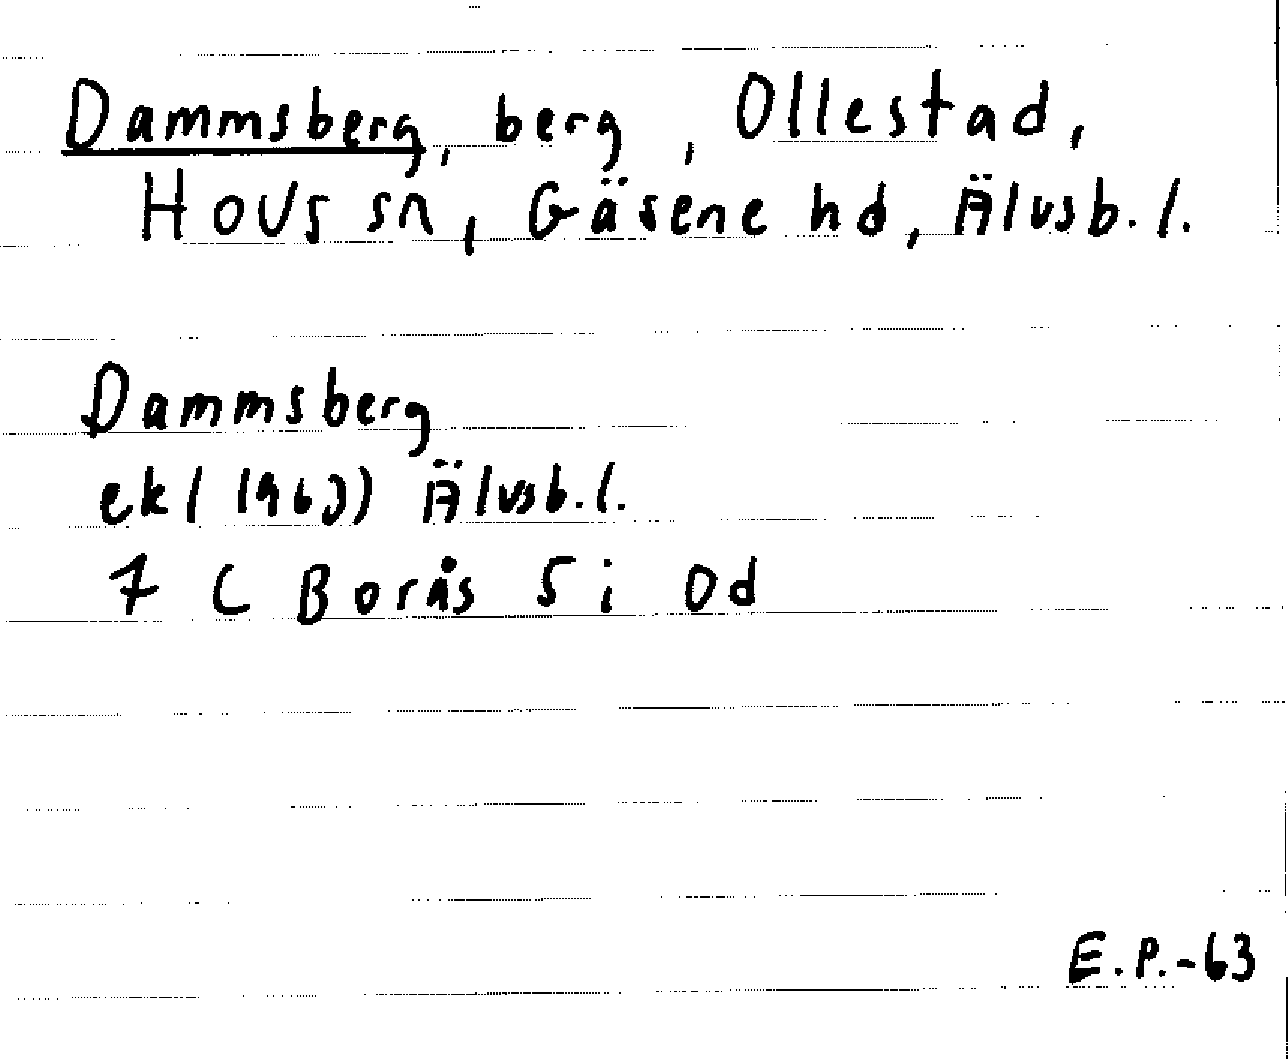 Dammsberg, berg, Ollestad,
Hovs sn, Gäsene hd, Älvsb. l.
Dammsberg
ek (1963) Älvsb. l.
7 C Borås 5 i 0d
E.P.-63